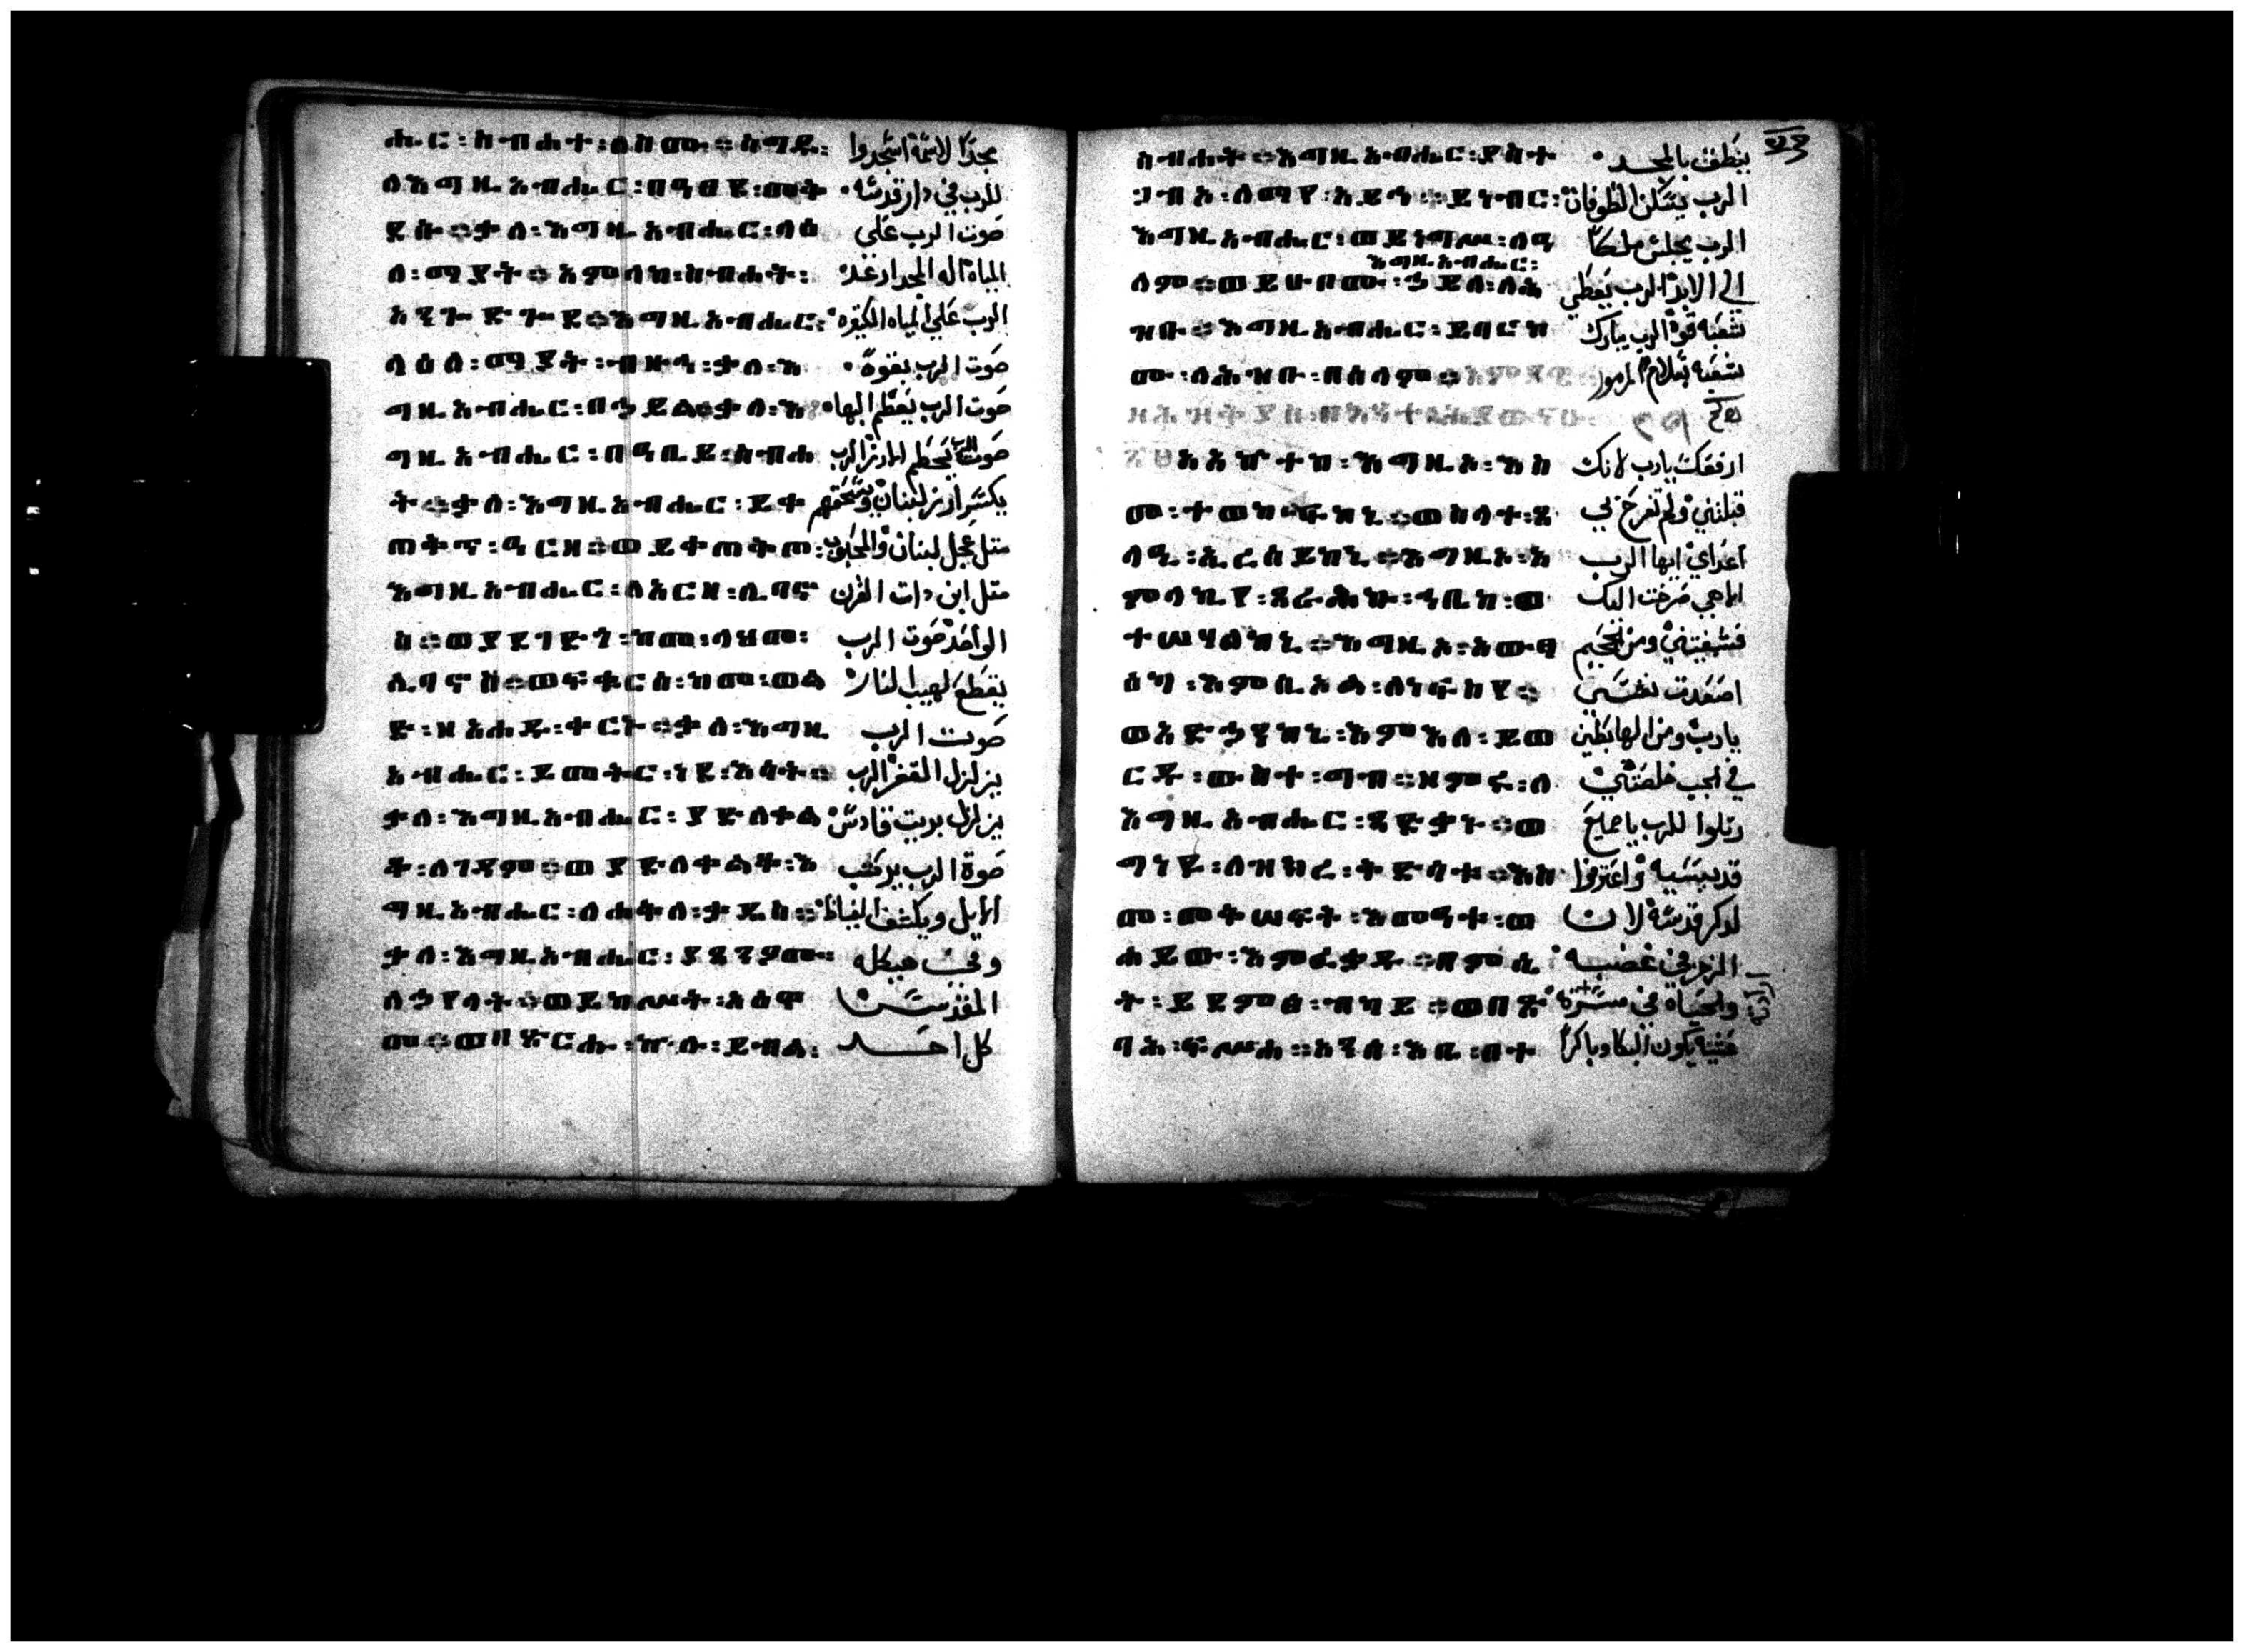 ሔር፡ስብሐተ፡ለስሙ።ስግዱ፡ مجدًا لاسمه اسجدوا
ለእግዚአብሔር፡በዓፀደ፡መቅ للرب في دار قدسه
ደሱ።ቃለ፡እግዚአብሔር፡ላዕ صوت الرب علي
ለ፡ማያት።አምላከ፡ስብሐት፡ المياه اله المجد ارعد
አንጐድጐደ።እግዚአብሔር፡ الرب علي المياه الكتيره
ላዕለ፡ማያት፡ብዙኅ፡ቃለ፡እ صوت الرب بقوه
ግዚአብሔር፡በኃይል።ቃለ፡እ صوت الرب بعظم البها
ግዚአብሔር፡በዓቢይ፡ስብሐ صوت الرب يحطم الارز الرب
ት።ቃለ፡እግዚአብሔር፡ይቀ يكسر ارز لبنان ويسحقهم
ጠቅጥ፡ዓርዘ።ወይቀጠቅጦ፡ متل عجل لبنان والمحبوب
እግዚአብሔር፡ለአርዘ፡ሊባኖ متل ابن دات القرن
ስ።ወያደገድጎ፡ከመ፡ላህመ፡ الواحد صوت الرب
ሊባኖስ።ወፍቁርሰ፡ከመ፡ወል يقطع لهيب النار
ድ፡ዘአሐዱ፡ቀርኑ።ቃለ፡እግዚ صوت الرب
አብሔር፡ይመትር፡ነደ፡እሳት። يزلزل القفر الرب
ቃለ፡እግዚአብሔር፡ያድለቀል يزلزل بريت قادس
ቆ፡ለገዳም።ወያድለቀልቆ፡እ صوة الرب يركب
ግዚአብሔር፡ለሐቅለ፡ቃዴስ። الايل ويكشف الغياظ
ቃለ፡እግዚአብሔር፡ያጸንዖሙ፡ وفي هيكله
ለኃየላት።ወይከሥት፡አዕዋ المقدس
መ።ወበጽርሑ፡ኵሉ፡ይብል፡ كل احد
ስብሐት።እግዚአብሔር፡ያስተ ينطق بالمجد
ጋብእ፡ለማየ፡አይኅ።ይነብር፡ الرب يسكن الطوفان
እግዚአብሔር፡ወይነግሥ፡ለዓ الرب يجلس ملكًا
እግዚአብሔር፡
ለም።ወይሁቦሙ፡ኃይለ፡ለሕ الي الابد الرب يعطي
ዝቡ።እግዚአብሔር፡ይባርክ شعبه قوة الرب يبارك
ሙ፡ለሕዝቡ፡በሰላም። شعبه بسلام المزمور
አአኵተከ፡እግዚኦ፡እስ ارفعك يارب لانك
መ፡ተወከፍከኒ።ወኢላተ፡ጸ قبلتني ولم تفرح بي
ላዒ፡ኢረሰይከኒ።እግዚኦ፡አ اعداي ايها الرب
ምላኪየ፡ጸራሕኩ፡ኀቤከ፡ወ الاهي صرخت اليك
ተሣሃልከኒ።እግዚኦ፡አውፃ فشفيتني ومن الجحيم
ዕካ፡እምሲኦል፡ለነፍስየ። اصعدت نفسي
ወአድኃንከኒ፡እምእለ፡ይወ يارب ومن الهابطين
ርዱ፡ውስተ፡ግብ።ዘምሩ፡ለ في الجب خلصتني
እግዚአብሔር፡ጻድቃኑ።ወ رتلوا للرب يا جميع
ግነዩ፡ለዝክረ፡ቅድሳቱ።እስ قديسيه واعترفوا
መ፡መቅሠፍት፡እመዓቱ፡ወ لدكر قدسه لان
ሐይው፡እምፈቃዱ።በምሴ الزجر في غضبه
ት፡ይደምፅ፡ብካይ።ወበጽ والحياه في مسرته
ባሕ፡ፍሥሐ።አንሰ፡እቤ፡በተ عشيه يكون البكا وباكرًا